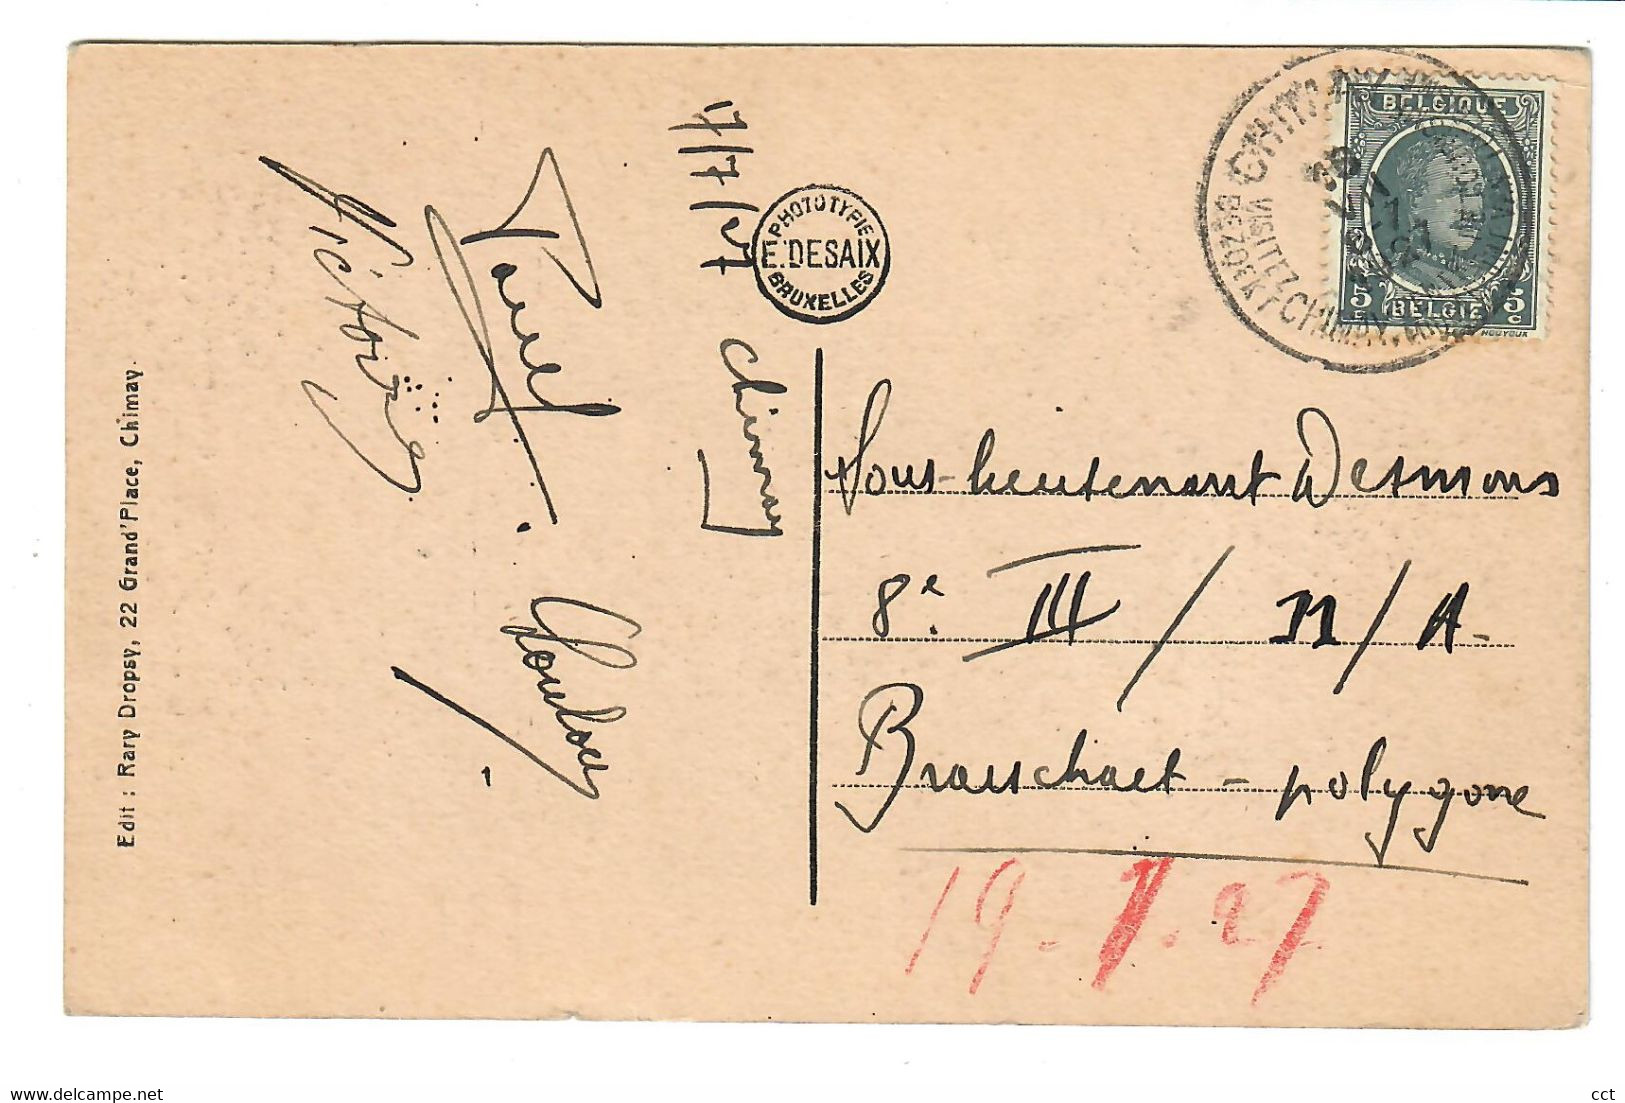 Edit : Rary Dropsy, 22 Grand'Place, Chimay.
Victorine
Paul
17/7/27
Chimay
PHOTOTYPIE
E. DESAIX
BRUXELLES
BELGIQUE
5c BELGIE 5c
HOUYOUX
CHIMAY
VISITEZ CHIMAY
BEZOEKT
Sous-lieutenant Desmons
8e III / M / A
Brasschaet - polygone
19-7.27
delcampe.net
cct